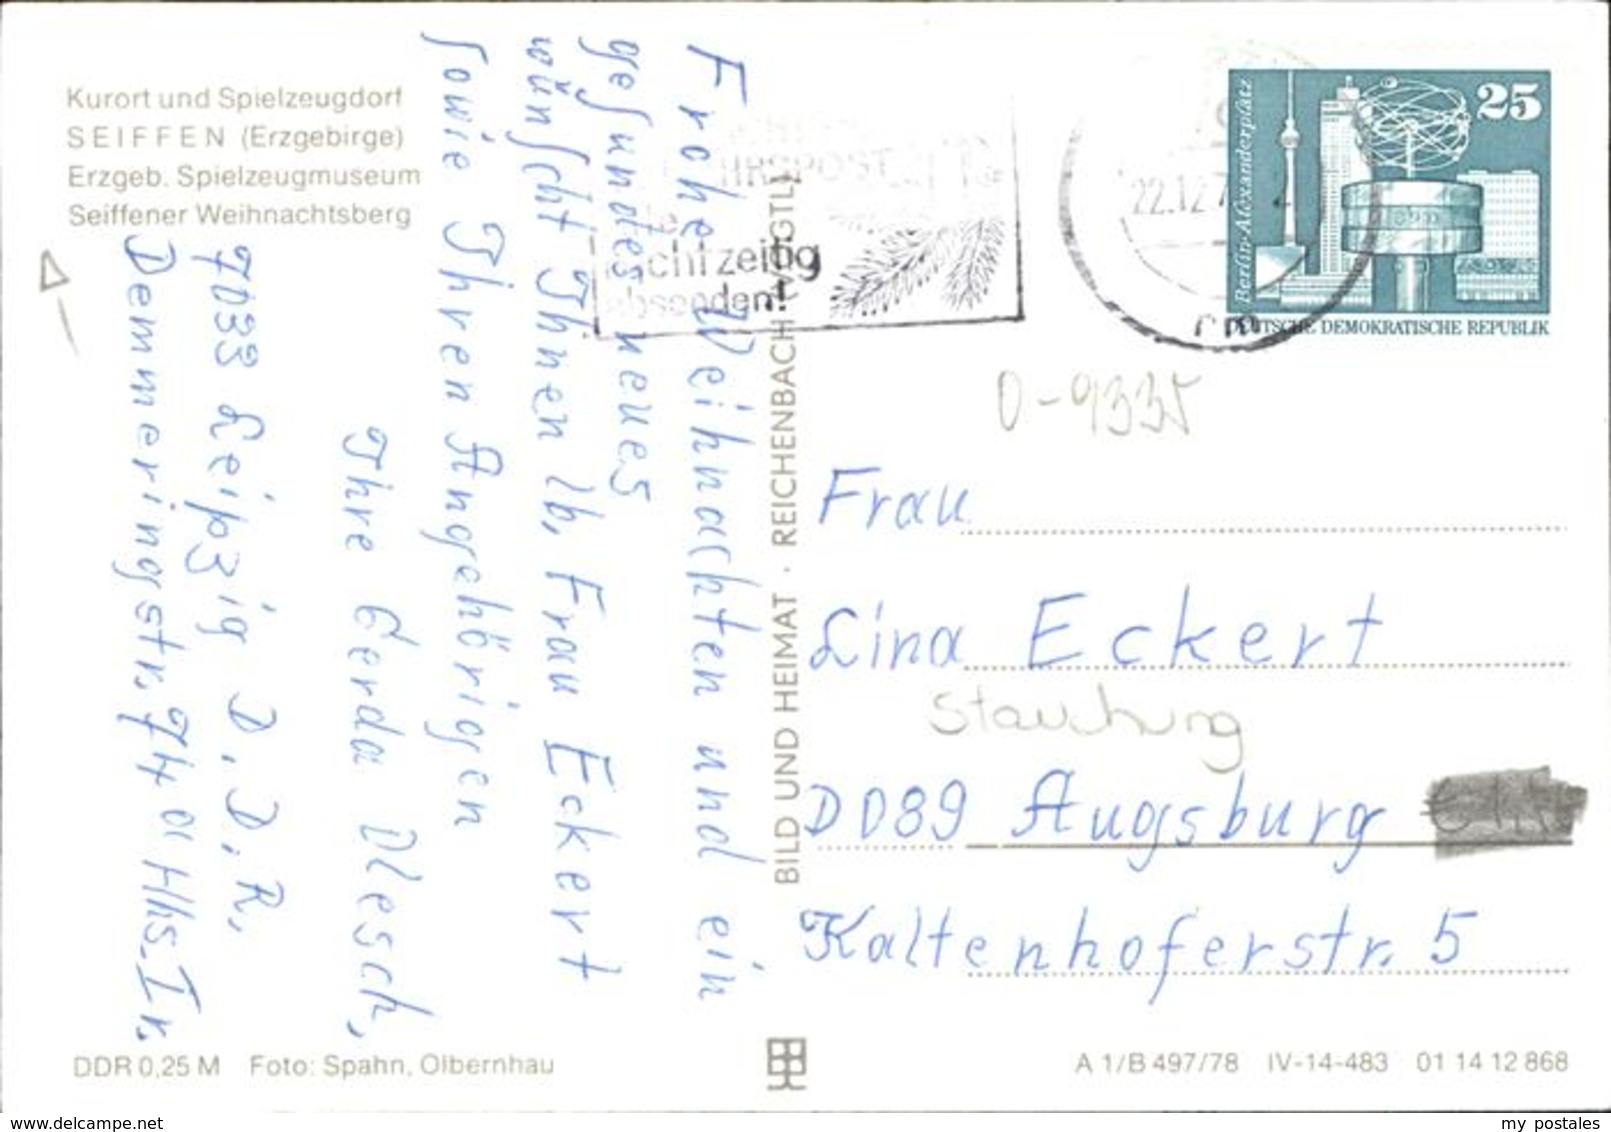 Kurort und Spielzeugdorf
SEIFFEN (Erzgebirge)
Erzgeb. Spielzeugmuseum
Seiffener Weihnachtsberg
Frohe Weihnachten und ein
gesundes neues
wünscht Ihnen lb, Frau Eckert
sowie Ihren Angehörigen
Ihre Gerda Olesch,
7033 Leipzig D.D.R,
Demmeringstr, 74 a Hhs. I r.
BILD UND HEIMAT · REICHENBACH (VOGTL)
HRSPOST
chtzeitig
absenden!
22.12.7
Berlin-Alexanderplatz
25
DEUTSCHE DEMOKRATISCHE REPUBLIK
0-9335
Frau
Lina Eckert
Stauchung
D D89 Augsburg
Kaltenhoferstr. 5
DDR 0,25 M Foto: Spahn, Olbernhau
A 1/B 497/78 IV-14-483 01 14 12 868
my postales